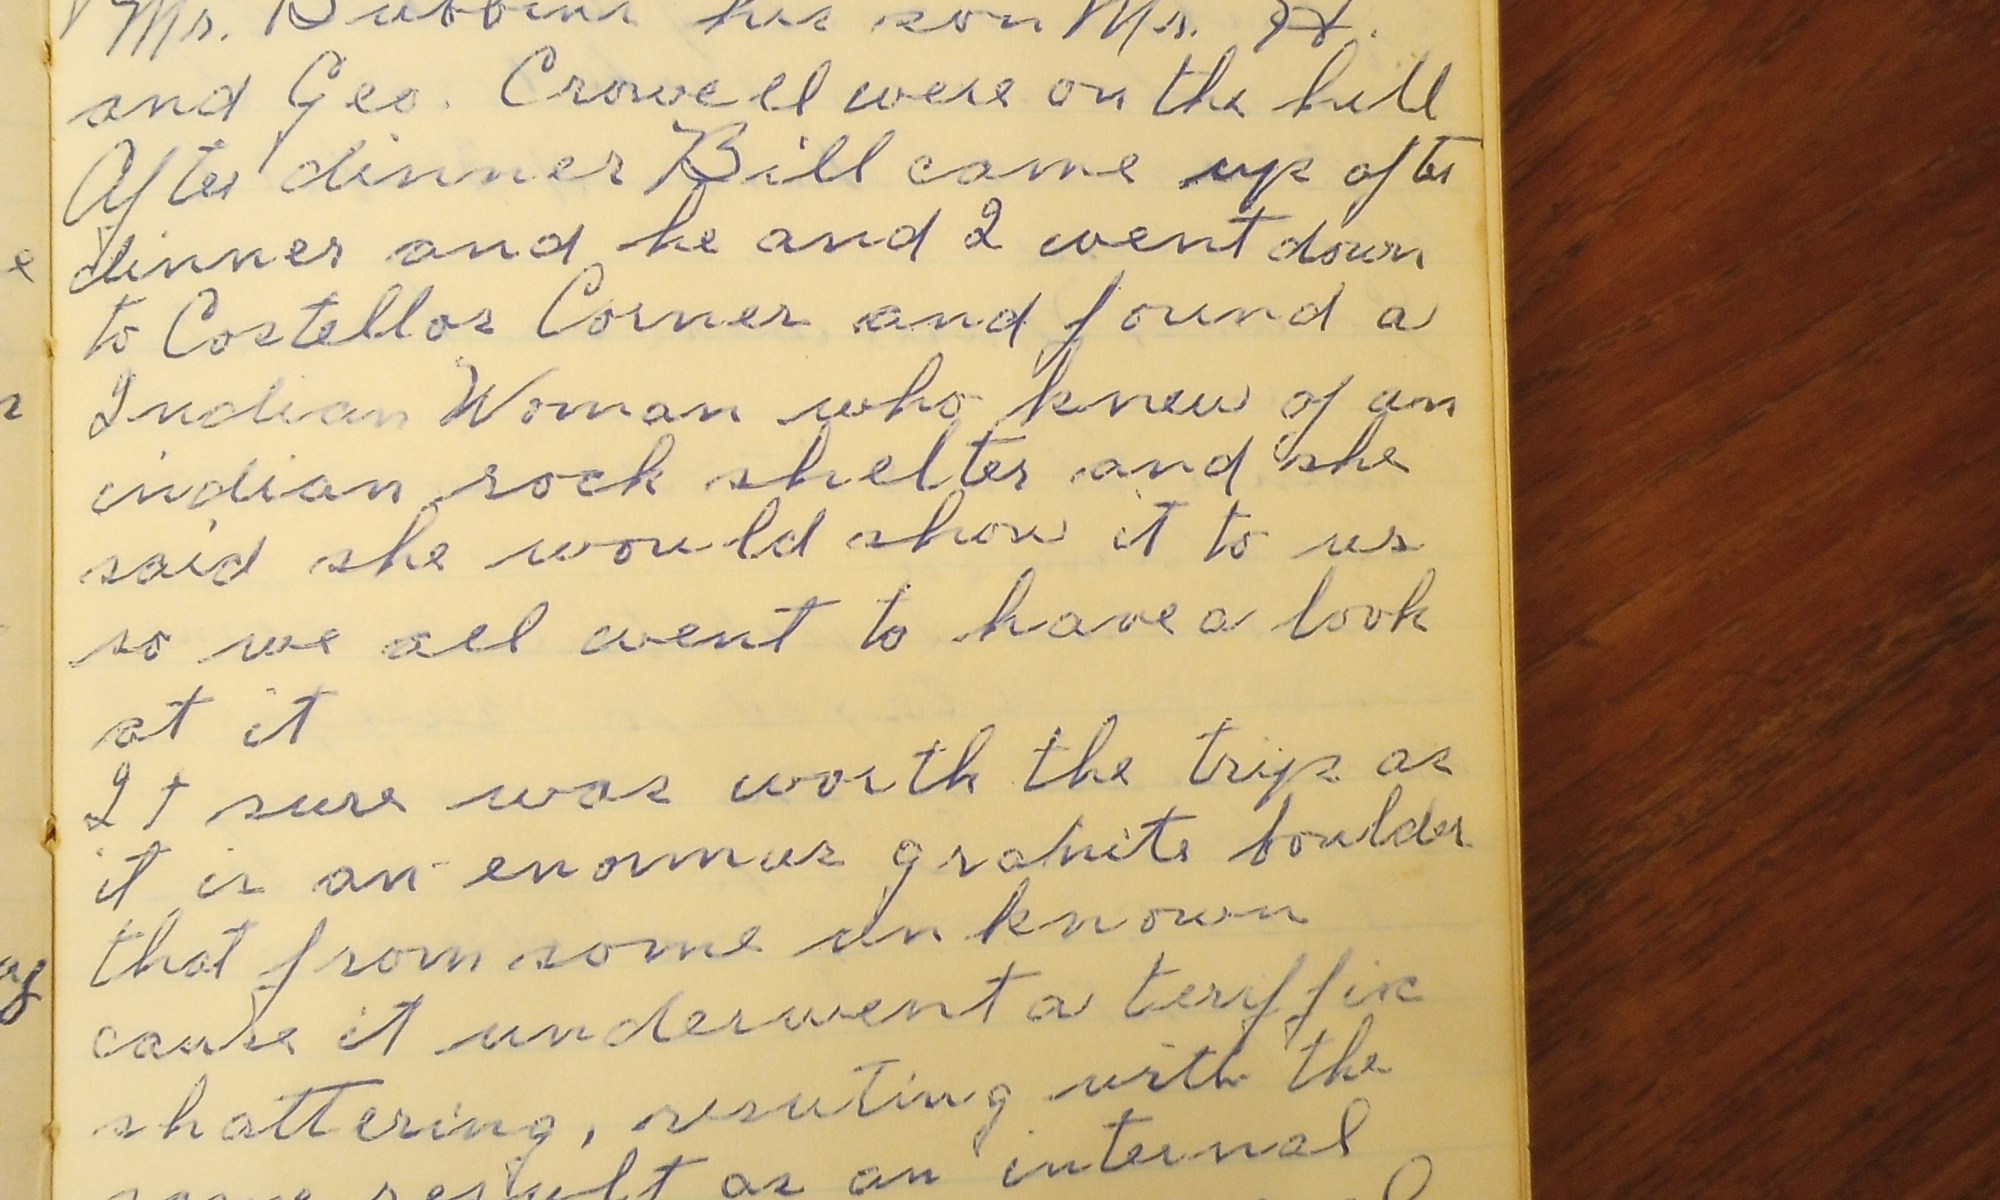 Mr. Dubbins his son Mr. H.
and Geo. Crowell were on the hill
After dinner Bill came up after
dinner and he and I went down
to Costellos Corner and found a
Indian Woman who knew of an
indian rock shelter and she
said she would show it to us
so we all went to have a look
at it
It sure was worth the trip as
it is an enormus granite boulder
that from some unknown
cause it underwent a teryffic
shattering, resuting with the
same result as an internal